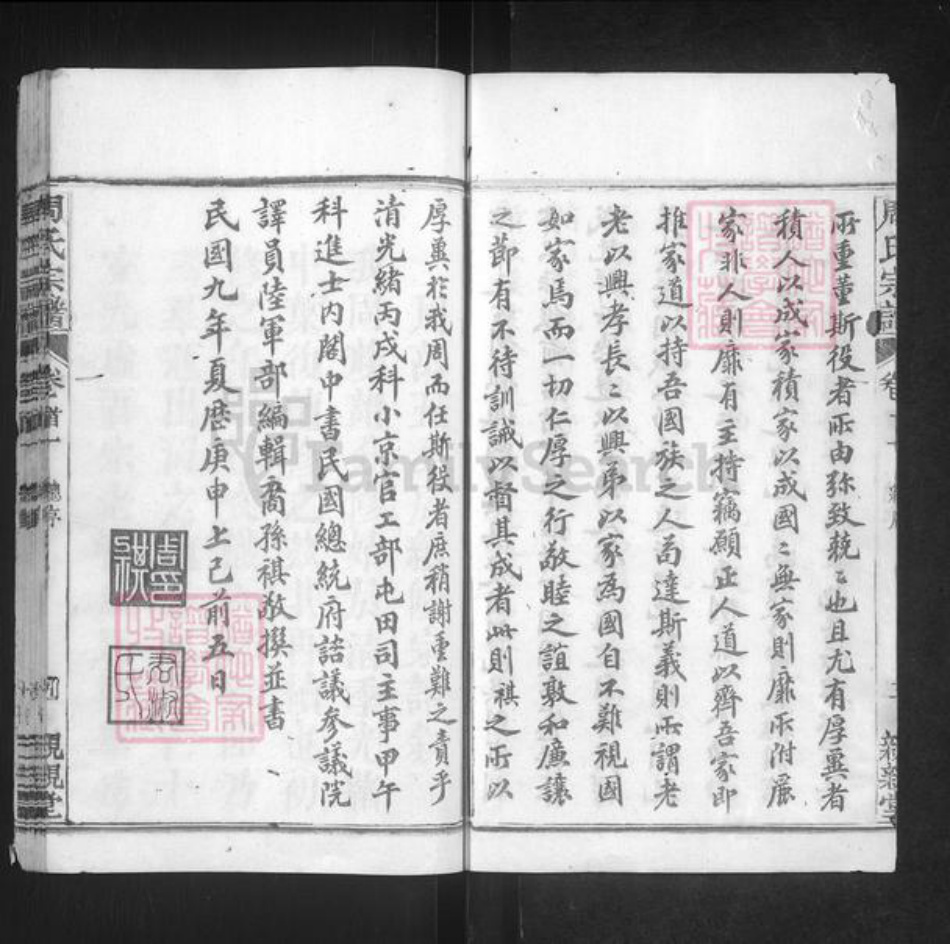 所重董斯役者所由弥致兢〻也且尤有厚冀者
積人以成家積家以成國〻無家則靡所附麗
家非人則靡有主持竊願正人道以齊吾家即
推家道以持吾國族之人苟達斯義則所謂老
老以興孝長〻以興弟以家為國自不難視國
如家焉而一切仁厚之行敦睦之誼敦和廉讓
之節有不待訓誡以督其成者此則祺之所以
厚冀於我周而任斯役者庶稍謝重難之責乎
清光緒丙戌科小京官工部屯田司主事甲午
科進士內閣中書民國總統府諮議參議院
譯員陸軍部編輯裔孫祺敬撰並書
民國九年夏歷庚申上巳前五日
周氏宗譜
卷首
一
總序
親親堂
周氏宗譜
親親堂
FamilySearch